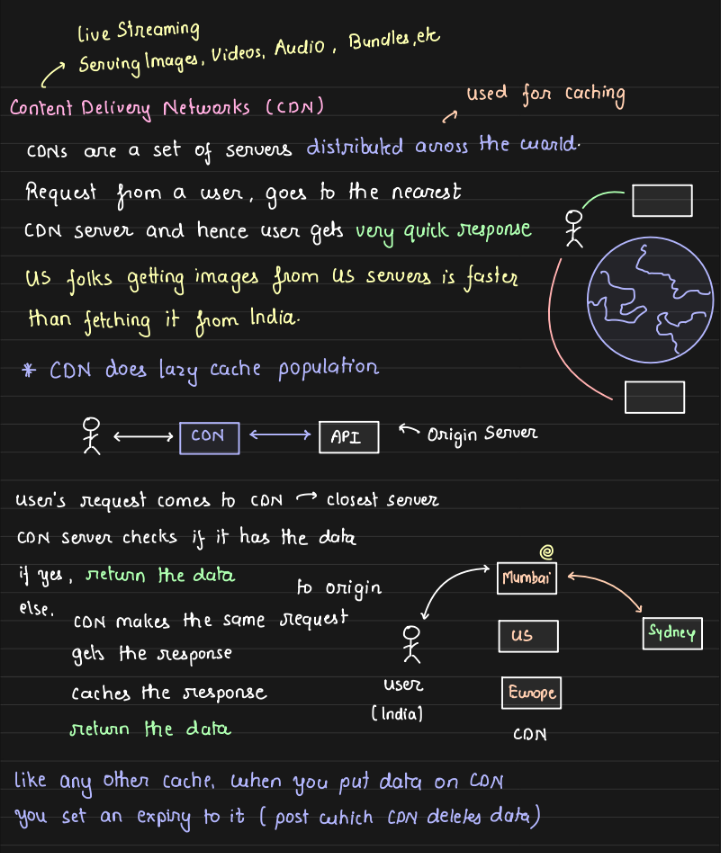 Live Streaming
Serving Images, Videos, Audio, Bundles, etc
Content Delivery Networks (CDN)
used for caching
CDNs are a set of servers distributed across the world.
Request from a user, goes to the nearest
CDN server and hence user gets very quick response
US folks getting images from US servers is faster
than fetching it from India.
* CDN does lazy cache population
CDN
API
Origin Server
user's request comes to CDN → closest server
CDN server checks if it has the data
if yes, return the data
else,
to origin
CDN makes the same request
gets the response
caches the response
return the data
Mumbai
US
Europe
CDN
Sydney
user
(India)
like any other cache, when you put data on CDN
you set an expiry to it (post which CDN deletes data)